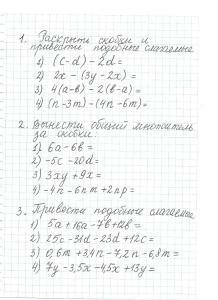 1. Раскрыти скобки и
привести подобные слагаемые
1) (c-d)-2d=
2) 2x-(3y-2x)=
3) 4(a-b)-2(b-a)
4) (n-3m)-(4n-6m)=
2. Вынести общий множитель
за скобки.
1) 6a-6b=
2) -5c-20d=
3) 3xy+9x=
4) -4n-6nm+2np=
3. Привести подобные слагаемые
1) 5a+16a-7b+12b=
2) 25c-31d-23d+12c=
3) 0,6m+3,4n-7,2n-6,8m=
4) 7y-3,5x-4,5x+13y=